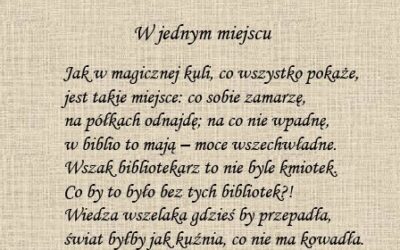 W jednym miejscu
Jak w magicznej kuli, co wszystko pokaże,
jest takie miejsce: co sobie zamarzę,
na półkach odnajdę; na co nie wpadnę,
w biblio to mają – moce wszechwładne.
Wszak bibliotekarz to nie byle kmiotek.
Co by to było bez tych bibliotek?!
Wiedza wszelaka gdzieś by przepadła,
świat byłby jak kuźnia, co nie ma kowadła.